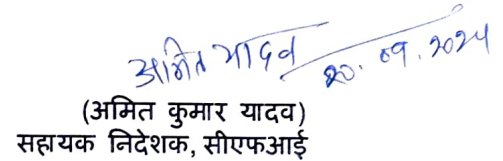 अमित यादव 20.09.2024
(अमित कुमार यादव)
सहायक निदेशक, सीएफआई